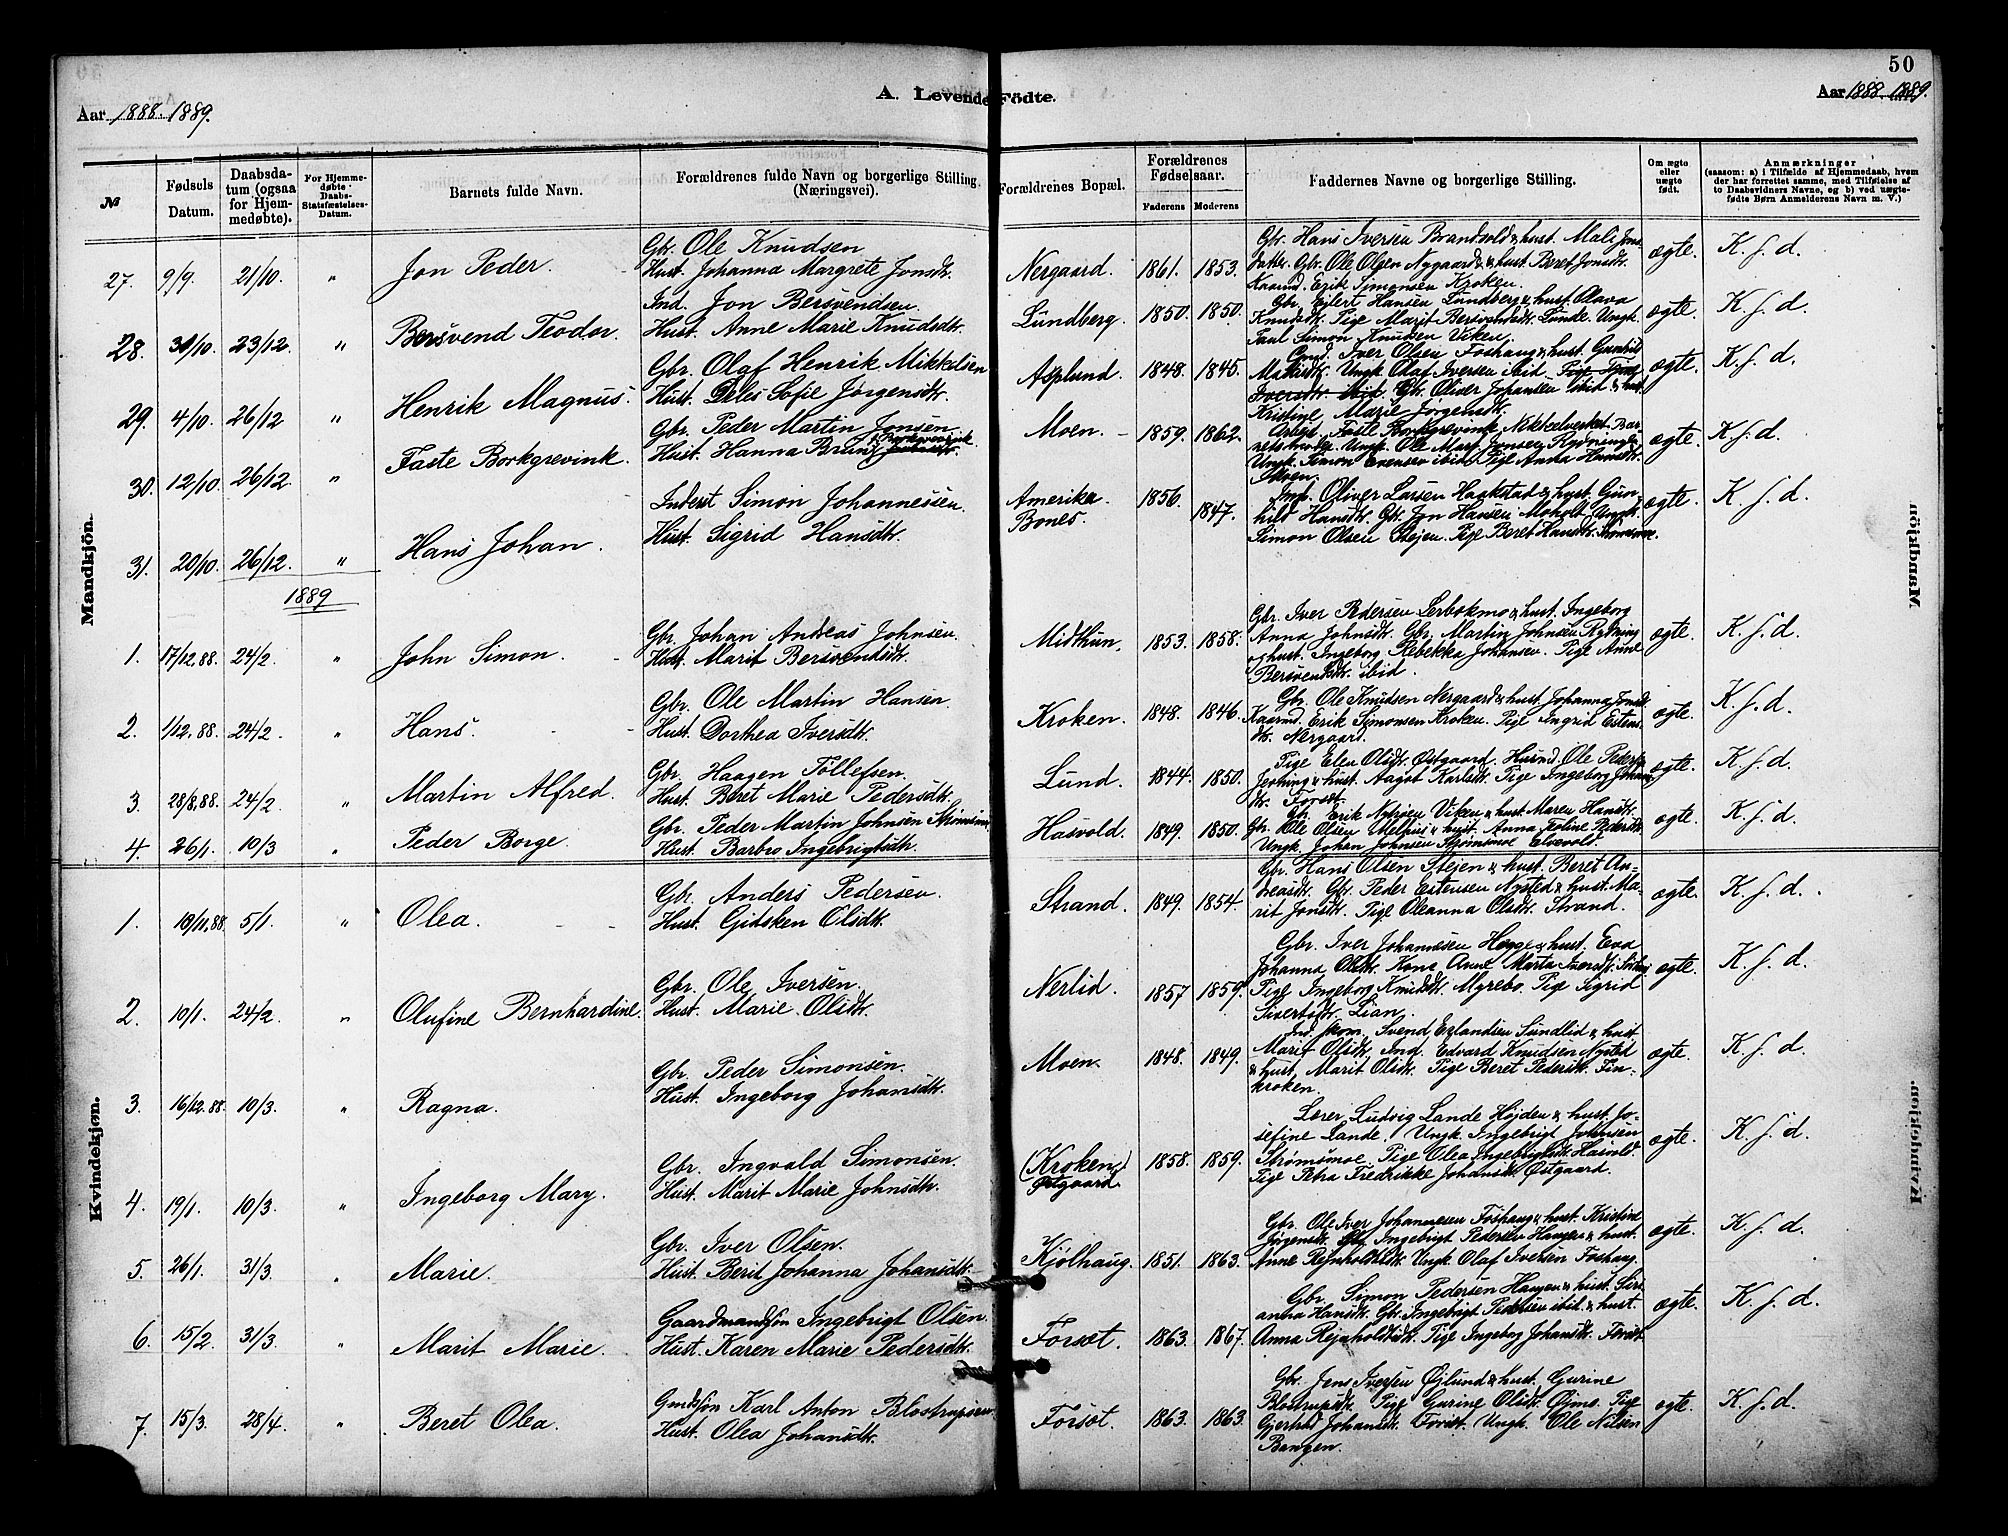 50
A. Levende Födte.
Aar 1888. 1889.
Aar 1888. 1889.
№
Fødsels Datum.
Daabsdatum (ogsaa for Hjemmedøbte).
For Hjemmedøbte Daabs-Statsfæstelses-Datum.
Barnets fulde Navn.
Forældrenes fulde Navn og borgerlige Stilling. (Næringsvei).
Forældrenes Bopæl.
Forældrenes Fødselsaar.
Faderens
Moderens
Faddernes Navne og borgerlige Stilling.
Om ægte eller uægte født.
Anmærkninger
(saasom: a) i Tilfælde af Hjemmedaab, hvem der har forrettet samme, med Tilføielse af to Daabsvidners Navne, og b) ved uægtefødte Børn Anmelderens Navn m. V.)
Mandkjön.
27. 9/9. 21/10. " Jon Peder.
Gbr. Ole Knudsen
Hust. Johanna Margrete Jonsdtr.
Nergaard. 1861. 1853.
Gbr. Hans Iversen Brandvold & hust. Mali Jons
datter. Gbr. Ole Olsen Nygaard & hust. Beret Jonsdtr.
Kaarmd. Erik Simonsen Kroken.
ægte. K. f. d.
28. 31/10. 23/12. " Bersvend Teodor.
Ind. Jon Bersvendsen
Hust. Anne Marie Knudsdtr.
Lundberg. 1850. 1850.
Gbr. Ejlert Hansen Lundberg & hust. Olava
Knudsdtr. Pige Marit Bersvendsdtr. Lunde. Ungk.
Paul Simon Knudsen Viken.
ægte. K. f. d.
29. 4/10. 26/12 " Henrik Magnus.
Gbr. Olaf Henrik Mikkelsen
Hust. Deles Sofie Jørgensdtr.
Asplund. 1848. 1845.
Iver Olsen Foshaug & hust. Gunhild
Ungk. Olaf Iversen ibid. Pige
Iversdtr. ibid. Gbr. Oliver Johansen ibid & hust.
Kristine Marie Jørgensdtr.
ægte. K. f. d.
30. 12/10. 26/12. " Faste Borkgrevink.
Gbr. Peder Martin Jonsen.
Hust. Hanna Bruun Borkgrevink
Moen. 1859. 1862.
Arbejd. Faste Borkgrevink Nikkelverket.
Ungk. Ole Mart. Jonsen Rydningen
Ungk. Simon Evensen ibid. Pige Anna Hansdtr.
Moen.
ægte. K. f. d.
31. 20/10. 26/12. " Hans Johan.
Inderst Simon Johannessen.
Hust. Sigrid Hansdtr.
Amerika
Bones. 1856. 1847.
Ind. Oliver Larsen Haakstad & hust. Gun
hild Hansdtr. Gbr. Jon Hansen Moholt. Ungk.
Simon Olsen Stejen. Pige Beret Hansdtr. Strømsmoe.
ægte. K. f. d.
1889
1. 17/12.88. 24/2. " John Simon.
Gbr. Johan Andreas Johnsen.
Hust. Marit Bersvendsdtr.
Midthun. 1853. 1858.
Gbr. Iver Pedersen Lerbokmo & hust. Ingeborg
Anna Johnsdtr. Gbr. Martin Johnsen Rydning
& hust. Ingeborg Rebekka Johansen. Pige Anne
Bersvendsdtr. ibid.
ægte. K. f. d.
2. 1/12.88. 24/2. " Hans.
Gbr. Ole Martin Hansen
Hust. Dorthea Iversdtr.
Kroken. 1848. 1846.
Gbr. Ole Knudsen Nergaard & hust. Johanna Jonsdtr.
Kaarmd. Erik Simonsen Kroken. Pige Ingrid Estens
dtr. Nergaard.
ægte. K. f. d.
3. 28/8.88. 24/2. " Martin Alfred.
Gbr. Haagen Tollefsen.
Hust. Beret Marie Pedersdtr.
Lund. 1844. 1850.
Pige Elen Olsdtr. Østgaard. Husmd. Ole Peders
& hust. Aagot Karlsdtr. Pige Ingeborg Johans
dtr. Forset.
ægte. K. f. d.
4. 26/1. 10/3 " Peder Borge.
Gbr. Peder Martin Johnsen Strømsmoe
Hust. Barbro Ingebrigtsdtr.
Hasvold. 1849. 1850.
Gbr. Erik Nybroen Viken & hust. Maren Hansdtr.
Gbr. Ole Olsen Melhus & hust. Anna Joline Pedersdtr.
Ungk. Johan Johnsen Strømsmoe Elvevold.
ægte. K. f. d.
Kvindekjøn.
1. 19/11.88. 5/1. " Olea.
Gbr. Anders Pedersen
Hust. Gidsken Olsdtr.
Strand. 1849. 1854.
Gbr. Hans Olsen Stejen & hust. Beret An-
dreasdtr. Gbr. Peder Estensen Nysted & hust. Ma-
rit Jonsdtr. Pige Oleanna Olsdtr. Strand.
ægte. K. f. d.
2. 10/1. 24/2. " Olufine Bernhardine.
Gbr. Ole Iversen.
Hust. Marie Olsdtr.
Nerlid. 1857 1859.
Gbr. Iver Johannesen Hegge & hust. Eva
Johanna Olsdtr. Kone Anne Marta Iversdtr.
Pige Ingeborg Knudsdtr. Myrebo. Pige Sigrid
Sivertsdtr. Lian.
ægte. K. f. d.
3. 16/12.88. 10/3. " Ragna.
Gbr. Peder Simonsen.
Hust. Ingeborg Johansdtr.
Moen. 1848. 1849.
Ind. Skom. Svend Erlandsen Sundlid & hust.
Marit Olsdtr. Ind. Edvard Knudsen Nysted
& hust. Marit Olsdtr. Pige Beret Pedersdtr. Fin-
kroken.
ægte. K. f. d.
4. 19/1. 10/3. " Ingeborg Mary.
Gbr. Ingvald Simonsen.
Hust. Marit Marie Johnsdtr.
(Kroken)
Østgaard. 1858. 1859.
Lærer Ludvig Lande Højden & hust. Jo-
sefine Lande. Ungk. Ingebrigt Johnsen
Strømsmoe. Pige Olea Ingebrigtsdtr. Hasvold.
Pige Petra Fredrikke Johansdtr. Østgaard.
ægte. K. f. d.
5. 26/1. 31/3. " Marie.
Gbr. Iver Olsen.
Hust. Berit Johanna Johansdtr.
Kjølhaug. 1851. 1863.
Gbr. Ole Iver Johannesen Foshaug & hust. Kristine
Jørgensdtr. Gbr. Ingebrigt Pedersen Haugen & hust.
Anne Rejnholdtsdtr. Ungk. Olaf Iversen Foshaug.
ægte. K. f. d.
6. 15/2. 31/3. " Marit Marie.
Gaardmandssøn Ingebrigt Olsen.
Hust. Karen Marie Pedersdtr.
Forset. 1863. 1867.
Gbr. Simon Pedersen Haugen & hust. Siri-
anna Hansdtr. Gbr. Ingebrigt Pedersen ibid. & hust.
Anna Rejnholdtsdtr. Pige Ingebor Johansdtr. Forset.
ægte. K. f. d.
7. 15/3. 28/4. " Beret Olea.
Gmdssøn Karl Anton Blostrupsen
Hust. Olea Johansdtr.
Forset. 1863. 1863.
Gbr. Jens Iversen Øjlund & hust. Gurine
Blostrupsdtr. Pige Gurine Olsdtr. Øjmo. Pige
Gjertrud Johansdtr. Forset. Ungk. Ole Nilsen
Bangen.
ægte. K. f. d.